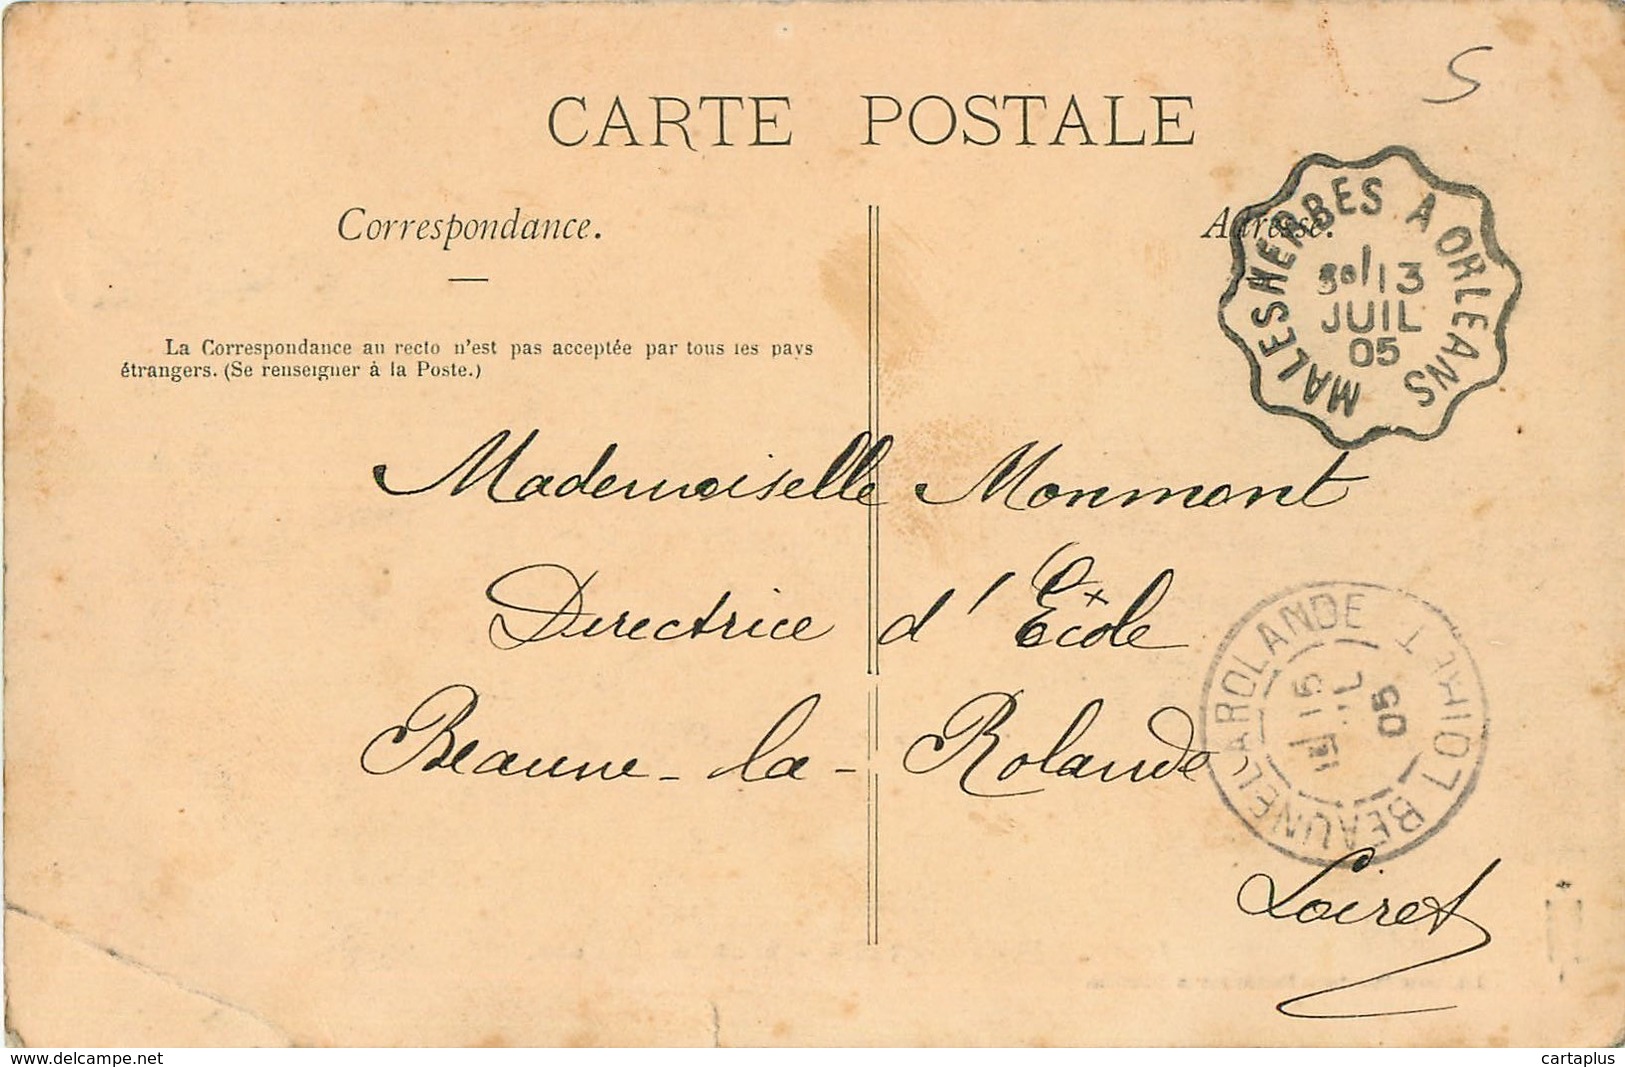 S
CARTE POSTALE
Correspondance.
Adresse.
MALESHERBES A ORLEANS
13
JUIL
05
La Correspondance au recto n'est pas acceptée par tous les pays
étrangers. (Se renseigner à la Poste.)
Mademoiselle Monmont
Directrice d'École
Beaune-la-Rolande
Loiret
BEAUNE LA ROLANDE LOIRET
15
05
www.delcampe.net
cartaplus